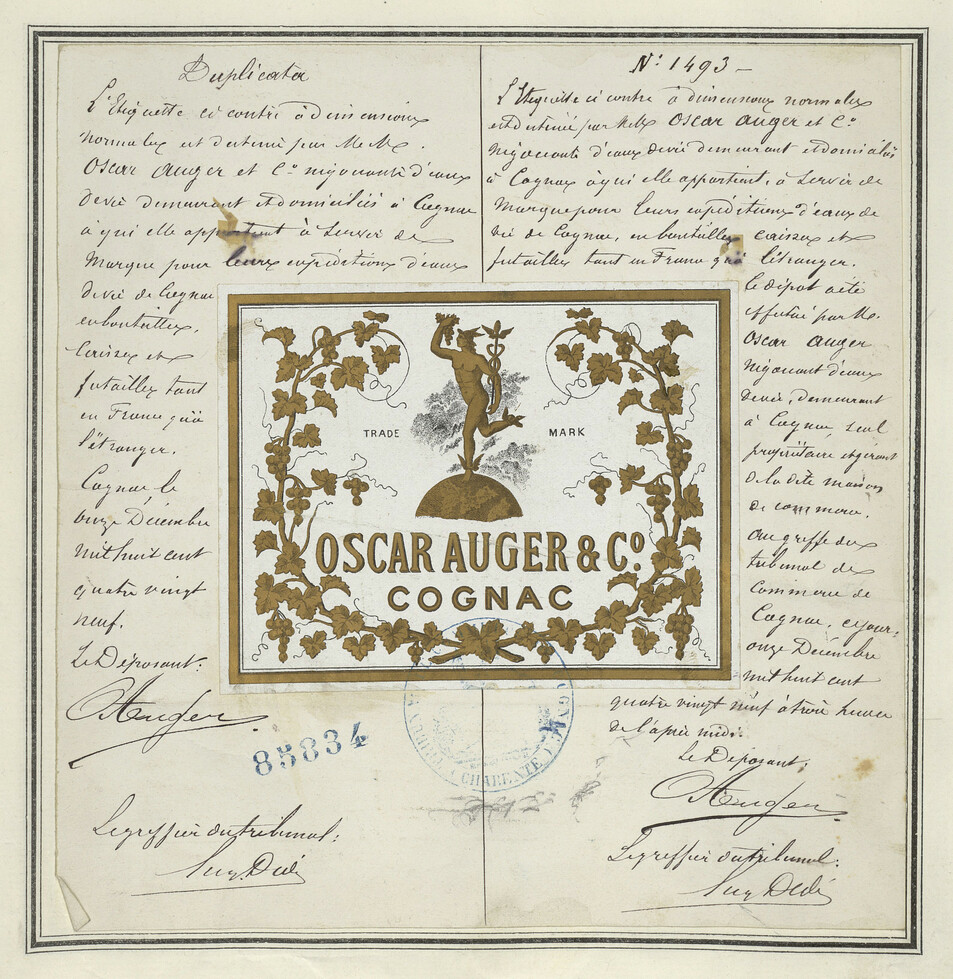 Duplicata
L'Etiquette ci contre à dimensions
normales est destinée par M.M.
Oscar Auger et Co. négociants d'eaux
de vie demeurant et domiciliés à Cognac
à qui elle appartient à servir de
Marque pour leurs expéditions d'eaux
de vie de Cognac
en bouteilles,
Caisses et
futailles tant
en France qu'à
l'étranger.
Cognac le
onze Décembre
mil huit cent
quatre vingt
neuf.
Le Déposant:
OAuger
85834
Le greffier du tribunal:
No. 1493 -
L'Etiquette ci contre à dimensions normales
est destinée par M.M. Oscar Auger et Co.
négociants d'eaux de vie demeurant et domiciliés
à Cognac à qui elle appartient, à servir de
Marque pour leurs expéditions d'eaux de
vie de Cognac, en bouteilles caisses et
futailles tant en France qu'à l'étranger.
Le dépôt a été
effectué par M.
Oscar Auger
négociant d'eaux
de vie, demeurant
à Cognac seul
propriétaire et gérant
de la dite maison
de commerce.
au greffe du
tribunal de
Commerce de
Cognac, ce jour,
onze Décembre
mil huit cent
quatre vingt neuf à trois heures
de l'après midi.
Le Déposant:
OAuger
Le greffier du tribunal:
TRADE MARK
OSCAR AUGER & Co.
COGNAC
CHARENTE